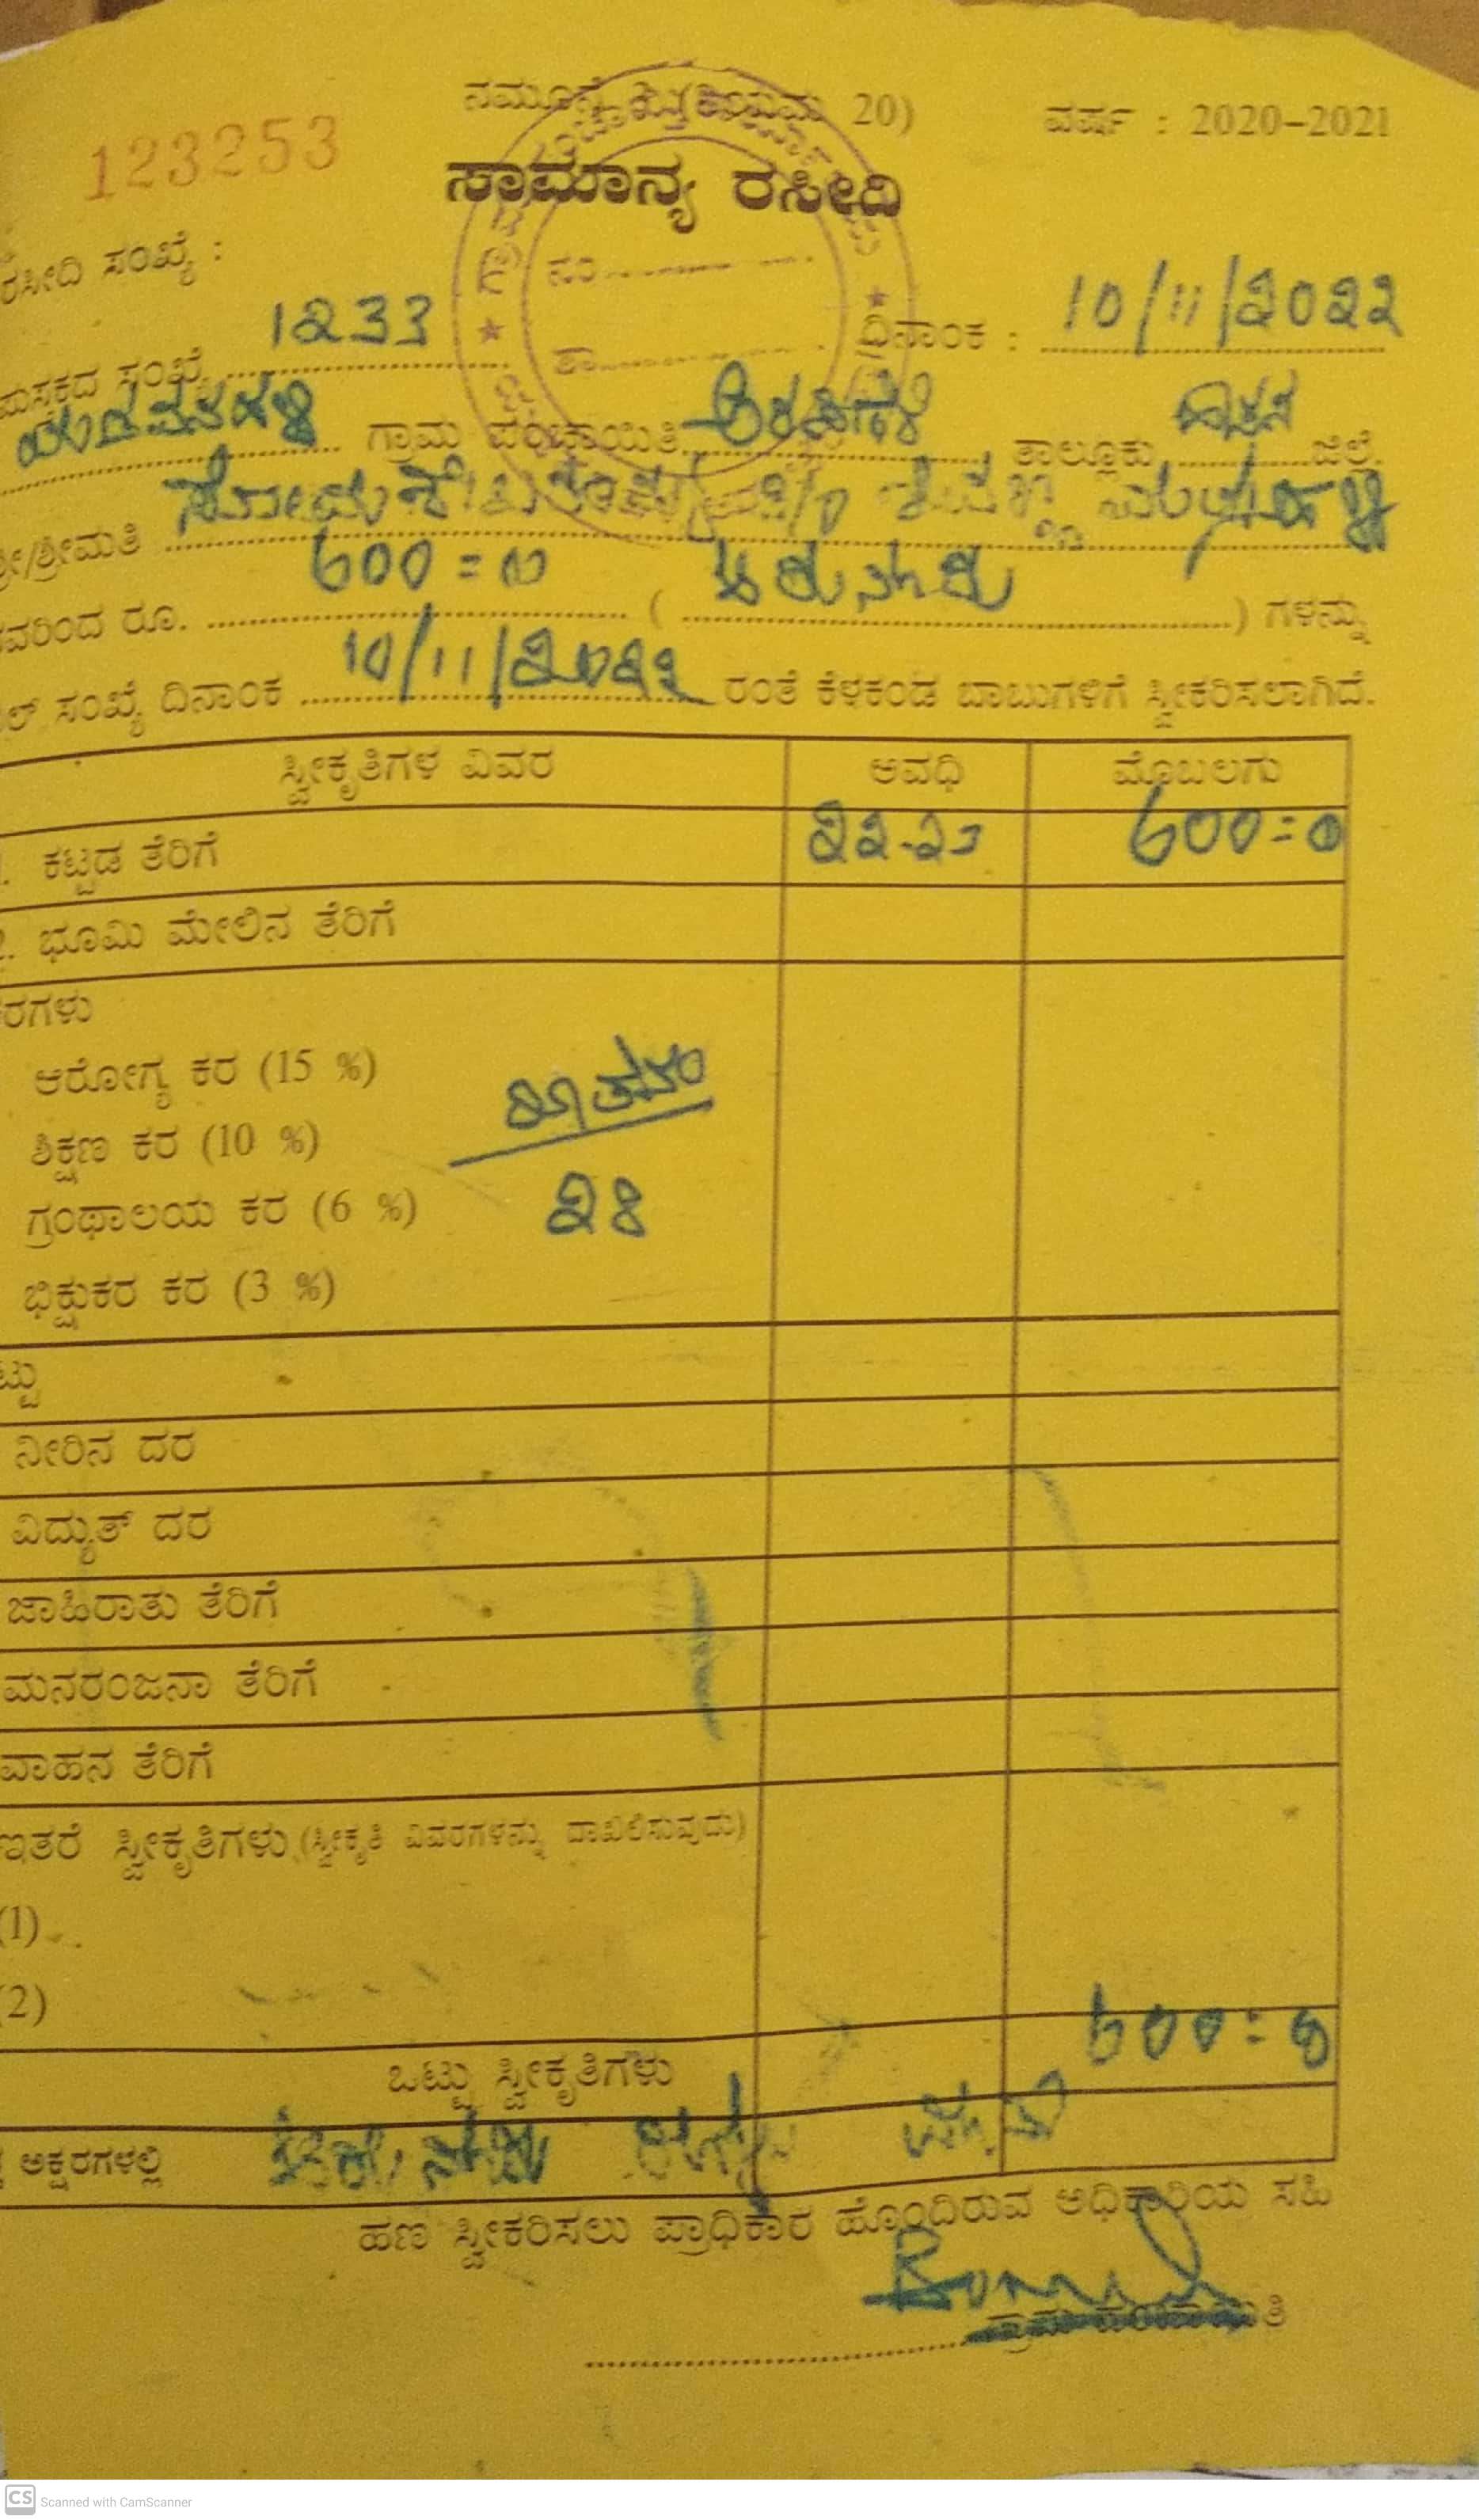 (ನಿಯಮ 20) ವರ್ಷ : 2020-2021
123253
ಸಾಮಾನ್ಯ ರಸೀದಿ
ರಸೀದಿ ಸಂಖ್ಯೆ :
ಪುಸ್ತಕದ ಸಂಖ್ಯೆ 1233 ದಿನಾಂಕ : 10/11/2022
ಗ್ರಾಮ ಪಂಚಾಯಿತಿ ಅರಕಲಗೂಡು ತಾಲ್ಲೂಕು ಹಾಸನ ಜಿಲ್ಲೆ.
ಶ್ರೀ/ಶ್ರೀಮತಿ
ರವರಿಂದ ರೂ. 600=00 (ಆರುನೂರು) ಗಳನ್ನು
ಸಂಖ್ಯೆ ದಿನಾಂಕ 10/11/2022 ರಂತೆ ಕೆಳಕಂಡ ಬಾಬುಗಳಿಗೆ ಸ್ವೀಕರಿಸಲಾಗಿದೆ.
ಸ್ವೀಕೃತಿಗಳ ವಿವರ ಅವಧಿ ಮೊಬಲಗು
1. ಕಟ್ಟಡ ತೆರಿಗೆ 22-23 600=0
2. ಭೂಮಿ ಮೇಲಿನ ತೆರಿಗೆ
ಕರಗಳು
ಆರೋಗ್ಯ ಕರ (15 %)
ಶಿಕ್ಷಣ ಕರ (10 %)
ಗ್ರಂಥಾಲಯ ಕರ (6 %) 28
ಭಿಕ್ಷುಕರ ಕರ (3 %)
ಟ್ಟು
ನೀರಿನ ದರ
ವಿದ್ಯುತ್ ದರ
ಜಾಹಿರಾತು ತೆರಿಗೆ
ಮನರಂಜನಾ ತೆರಿಗೆ
ವಾಹನ ತೆರಿಗೆ
ಇತರೆ ಸ್ವೀಕೃತಿಗಳು (ಸ್ವೀಕೃತಿ ವಿವರಗಳನ್ನು ದಾಖಲಿಸುವುದು)
(1)
(2)
ಒಟ್ಟು ಸ್ವೀಕೃತಿಗಳು 600=0
ಅಕ್ಷರಗಳಲ್ಲಿ ಆರುನೂರು
ಹಣ ಸ್ವೀಕರಿಸಲು ಪ್ರಾಧಿಕಾರ ಹೊಂದಿರುವ ಅಧಿಕಾರಿಯ ಸಹಿ
ಗ್ರಾಮ ಪಂಚಾಯಿತಿ
CS Scanned with CamScanner